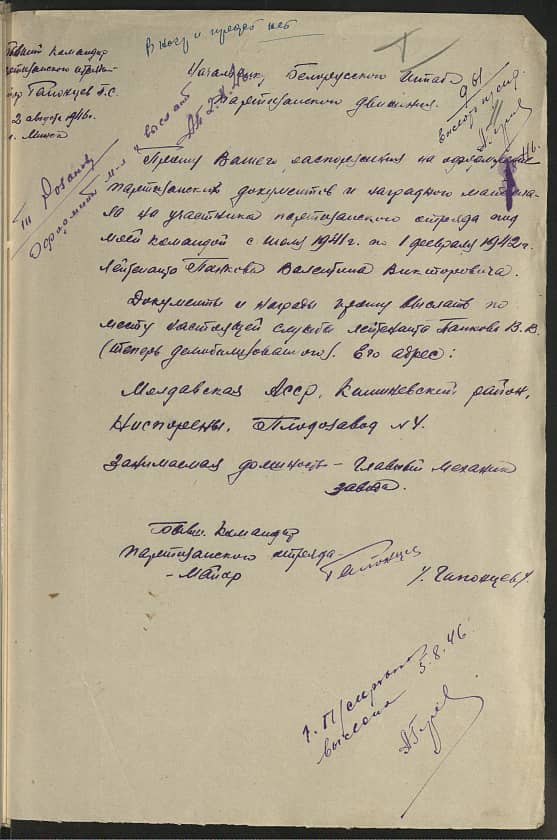 Бывший командир
партизанского отряда
майор Гапонцев Г.С.
2 августа 1946г.
г. Минск
Начальнику Белорусского Штаба
Партизанского движения.
т. Розанов
Оформить и выслать
выслать
Прошу Вашего распоряжения на оформление
партизанских документов и наградного материа-
ла на участника партизанского отряда под
моей командой с июля 1941г. по 1 февраля 1942г.
лейтенанта Панкова Валентина Викторовича.
Документы и награды прошу выслать по
месту настоящей службы лейтенанта Панкова В.В.
(теперь демобилизованного). Его адрес:
Молдавская АССР, Кишиневский район,
Ниспорены, Плодозавод №4.
Занимаемая должность – Главный механик
завода.
Бывш. командир
партизанского отряда –
– Майор
/Гапонцев/.
выслана 5.8.46